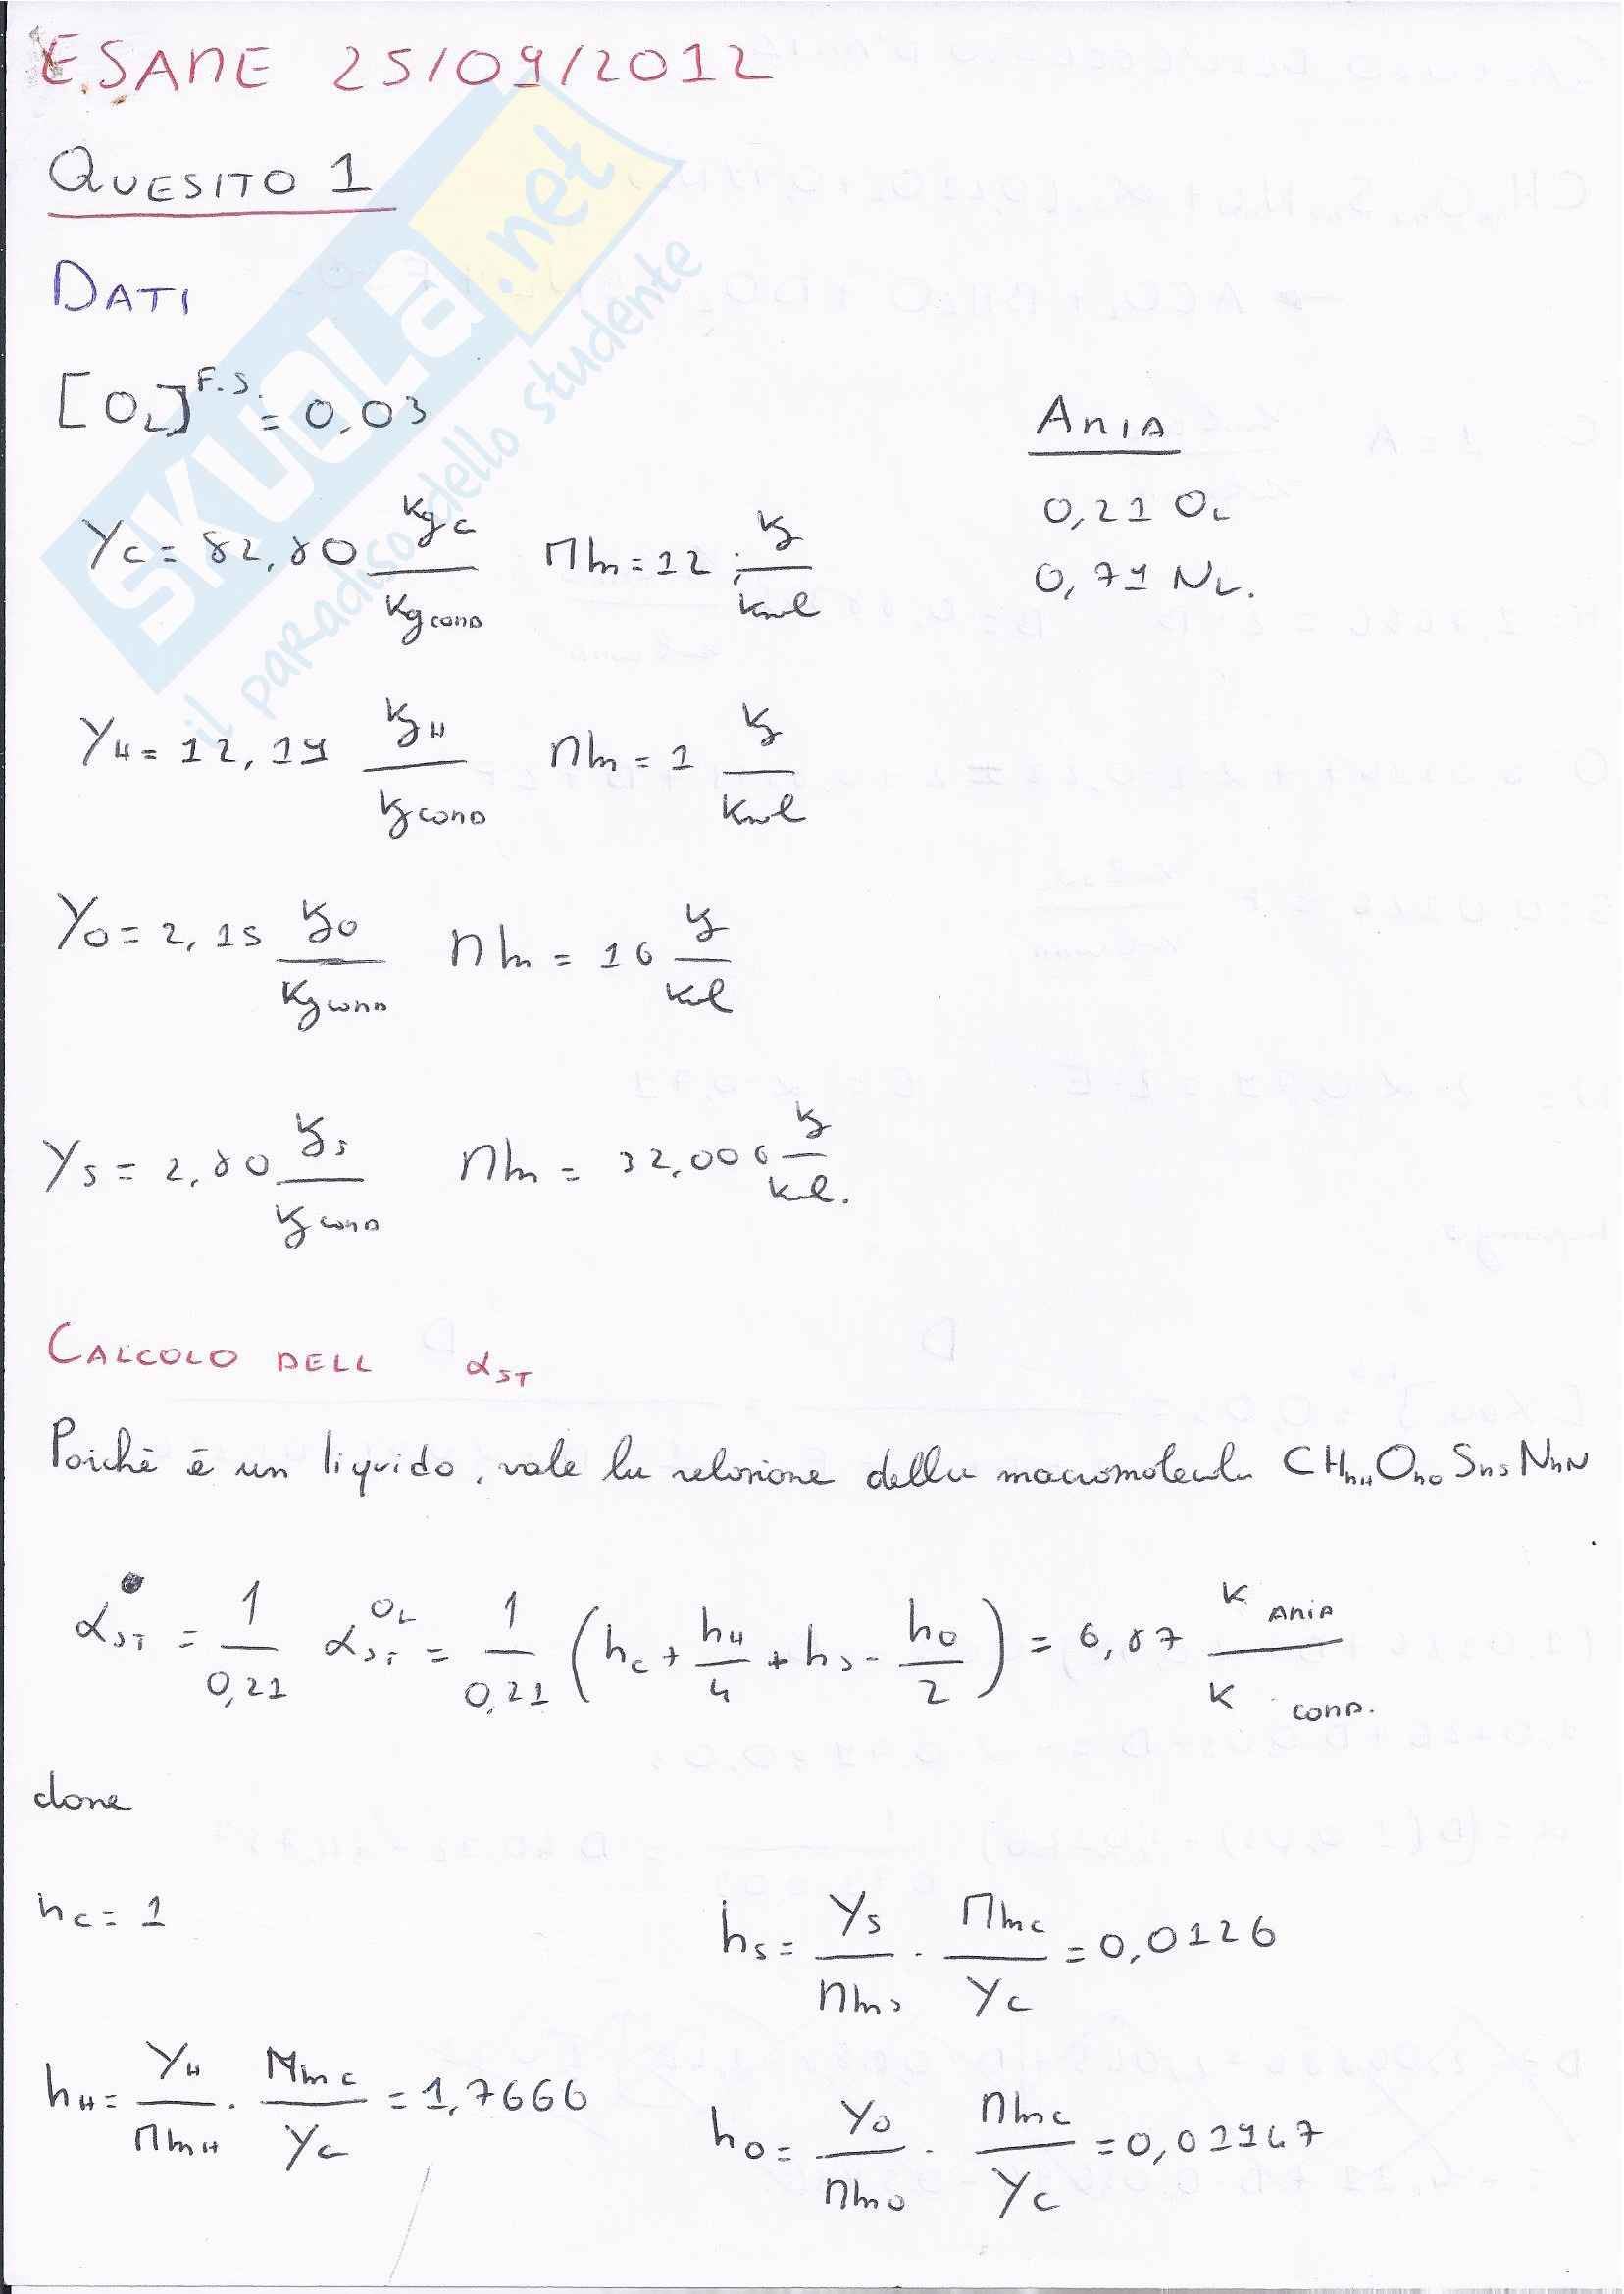 ESAME 25/09/2012
QUESITO 1
DATI
[O₂]^F.S. = 0,03
ARIA
0,21 O₂
0,79 N₂.
Yc = 82,80 kg c / kg COMB Mm = 12 kg / kmol
YH = 12,19 kg H / kg COMB Mm = 1 kg / kmol
YO = 2,15 kg O / kg COMB Mm = 16 kg / kmol
YS = 2,80 kg S / kg COMB Mm = 32,006 kg / kmol.
CALCOLO DELL αST
Poichè è un liquido, vale la relazione della macromolecola CHnHOnOSnSNnN
αST = 1/0,21 αST^O₂ = 1/0,21 (nc + nH/4 + nS - nO/2) = 6,87 K ARIA / K COMB.
dove
nc = 1
nS = YS/MmS · Mmc/Yc = 0,0126
nH = YH/MmH · Mmc/Yc = 1,7666
nO = YO/MmO · Mmc/Yc = 0,01947
SKUOLA.net
il paradiso dello studente